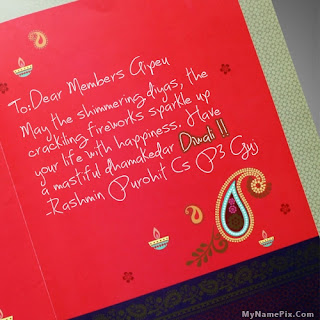 To:Dear Members Aipeu
May the shimmering diyas, the
crackling fireworks sparkle up
your life with happiness. Have
a mastiful dhamakedar Diwali !!
-Rashmin Purohit Cs P3 Guj
MyNamePix.Com